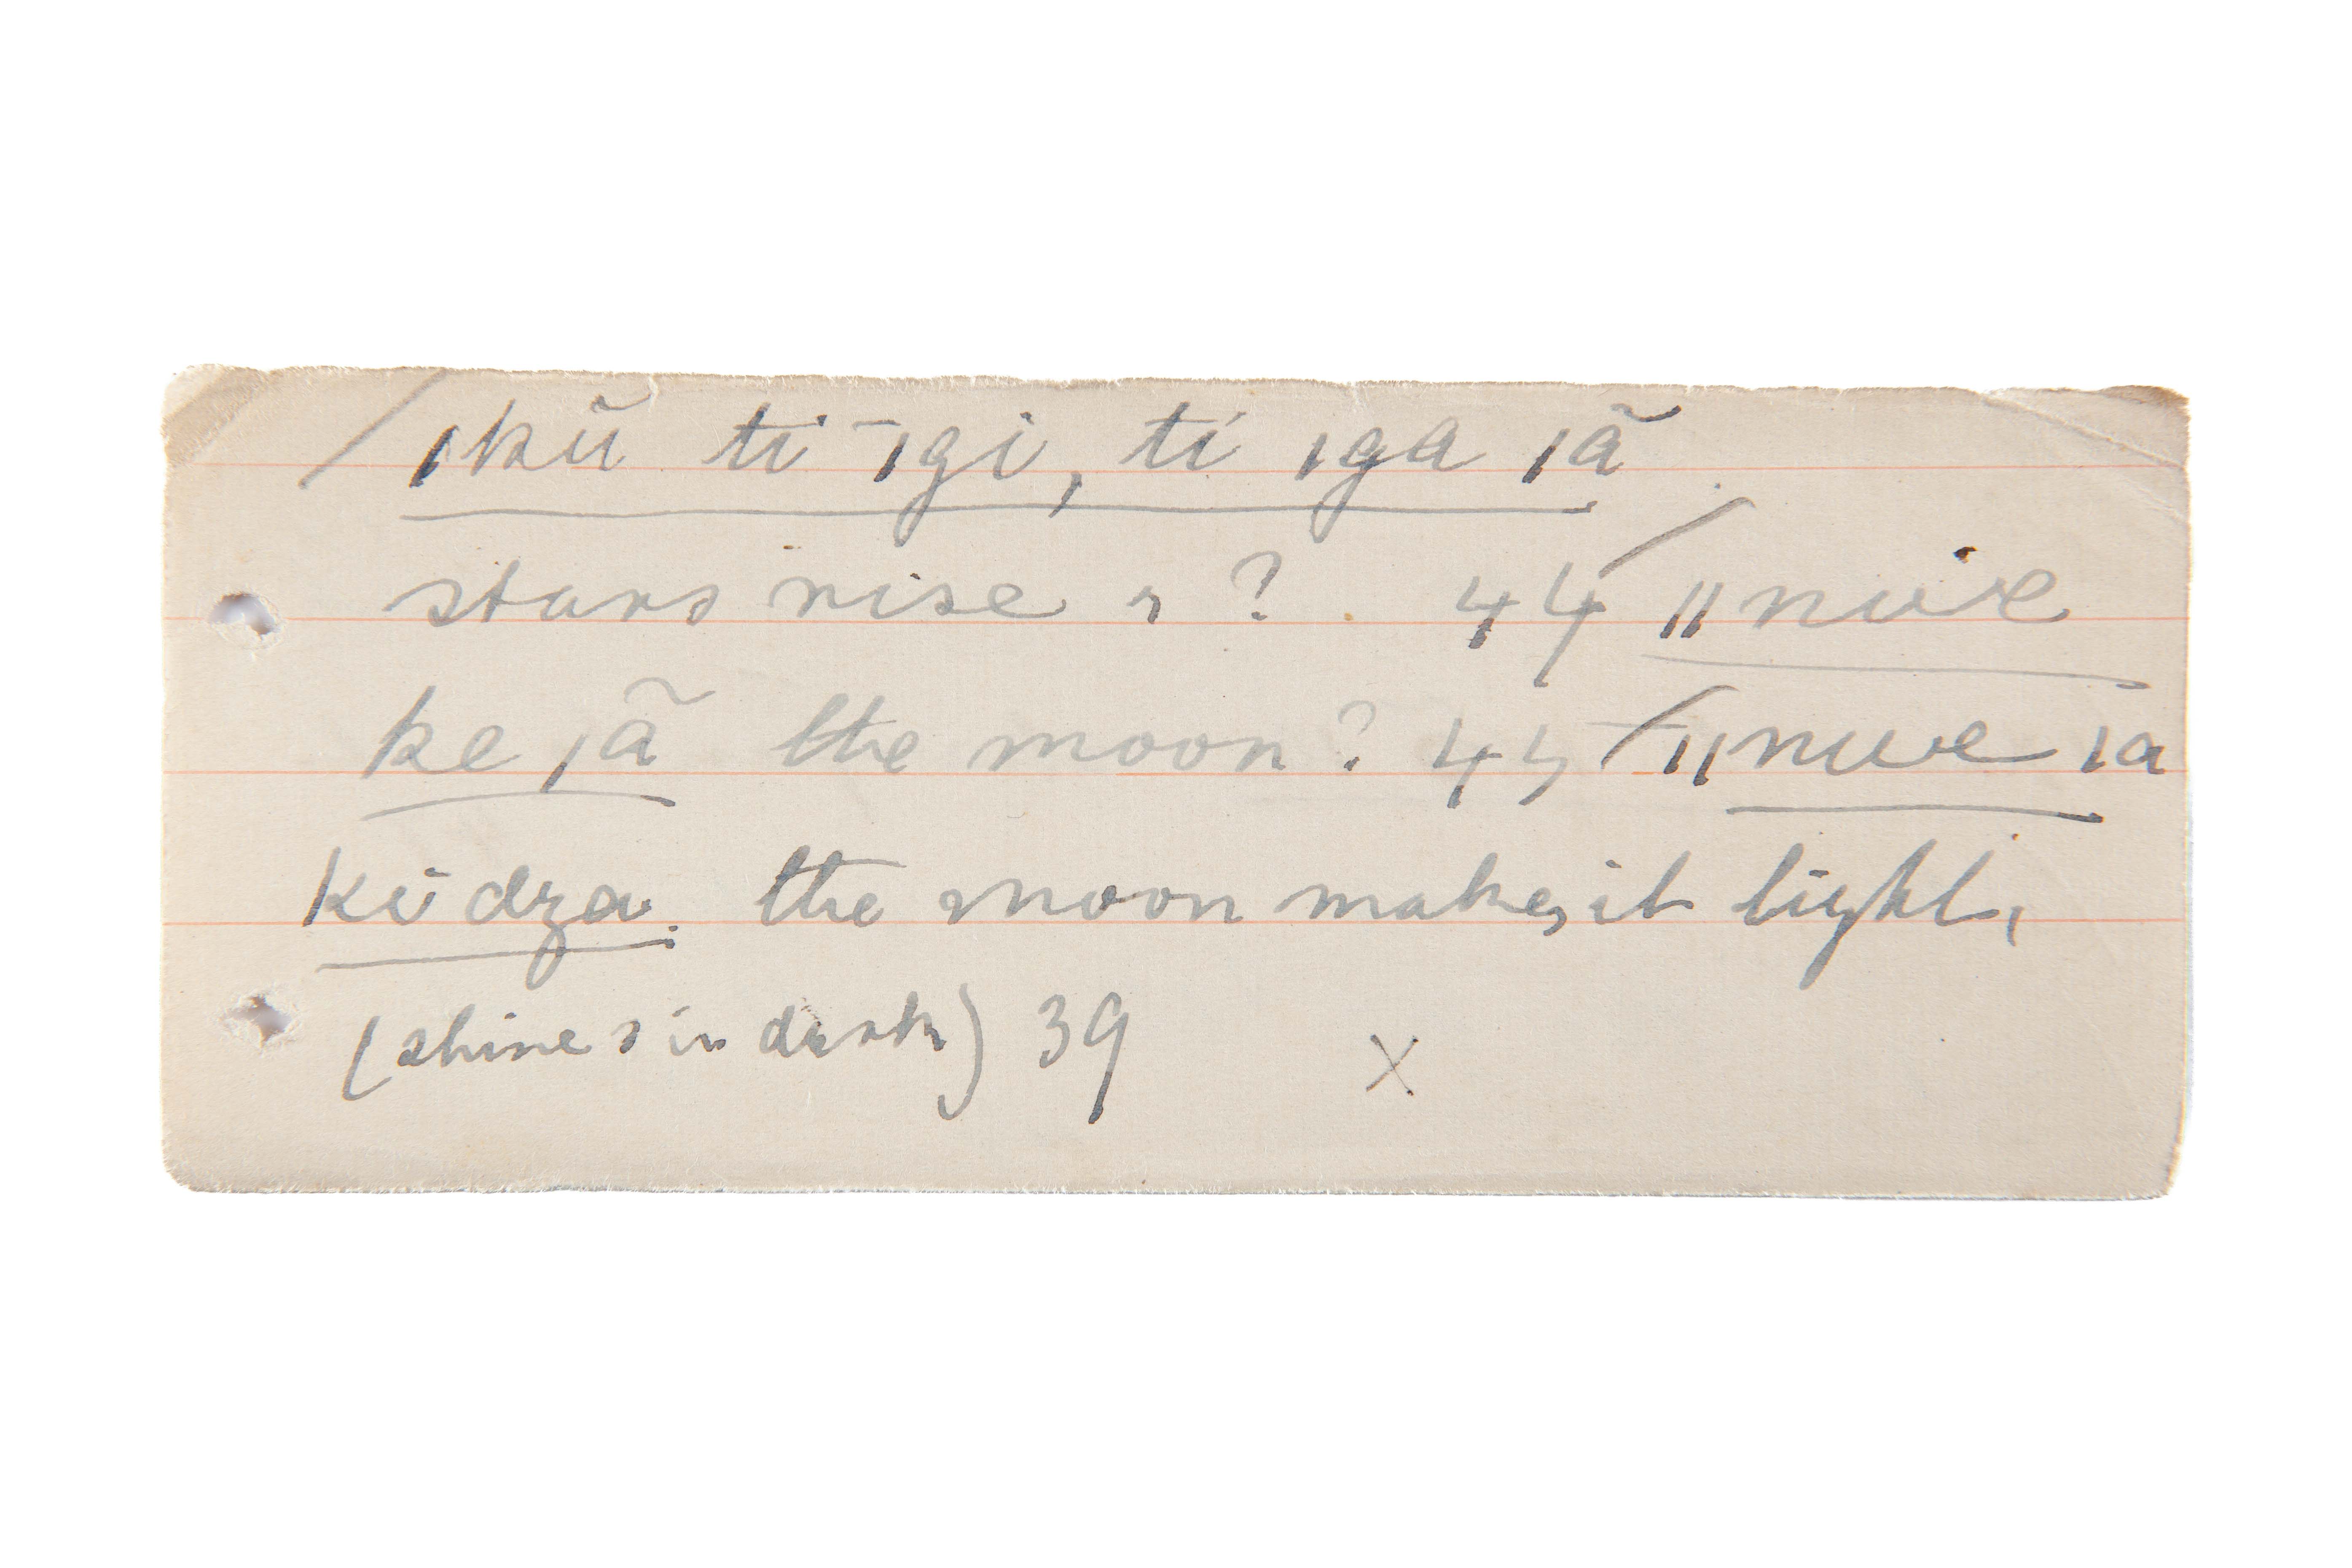 / ǀkũ ti ̄ǀgi, ti ǀga ǀã
stars rise & ? 44 / ǁnuie
ke ǀã the moon? 44 / ǁnue ǀa
ki dza. the moon makes it light,
(shines in dark) 39 X